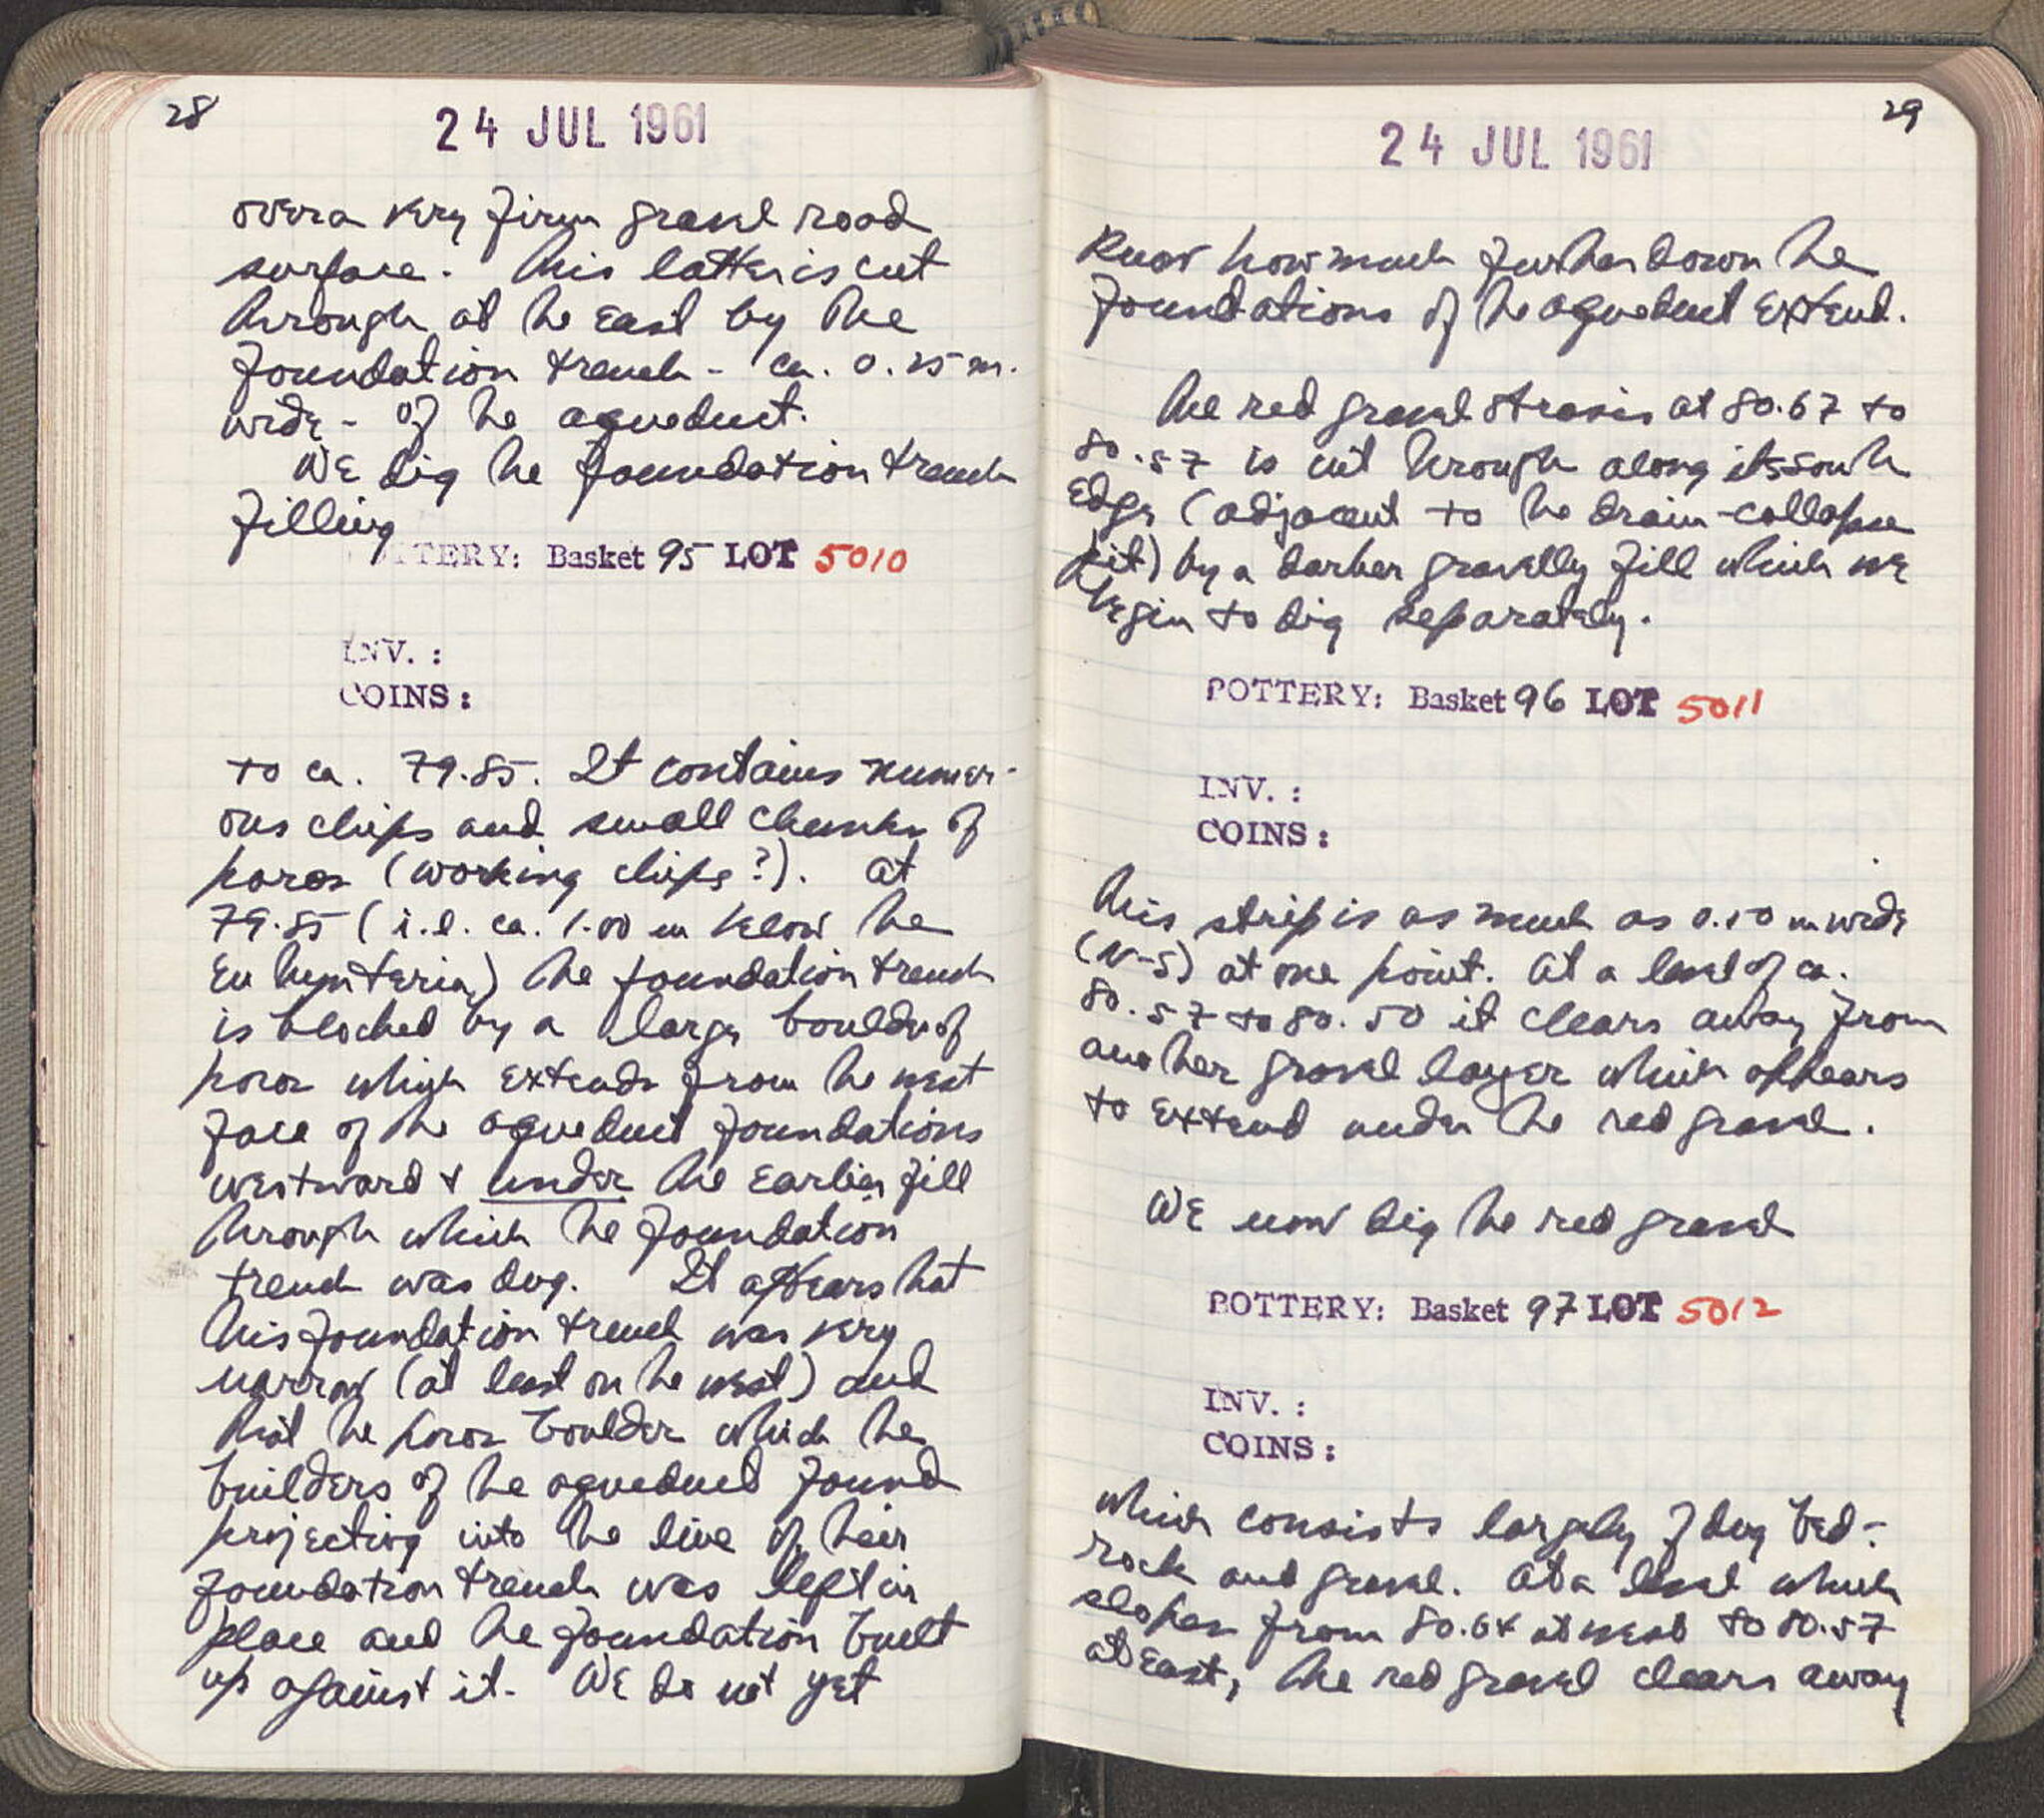 28
24 JUL 1961
over a very firm gravel road
surface. This latter is cut
through at the east by the
foundation trench - ca. 0.25 m.
wide - of the aqueduct.
We dig the foundation trench
filling
TTERY: Basket 95 LOT 5010
INV. :
COINS :
to ca. 79.85. It contains numer-
ous chips and small chunks of
poros (working chips?). At
79.85 (i.e. ca. 1.00 m below the
Euthynteria) the foundation trench
is blocked by a large boulder of
poros which extends from the west
face of the aqueduct foundations
westward & under the earlier fill
through which the foundation
trench was dug. It appears that
this foundation trench was very
narrow (at least on the west) and
that the poros boulder which the
builders of the aqueduct found
projecting into the line of their
foundation trench was left in
place and the foundation built
up against it. We do not yet
29
24 JUL 1961
know how much further down the
foundations of the aqueduct extend.
The red gravel stratum at 80.67 to
80.57 is cut through along its south
edge (adjacent to the drain-collapse
pit) by a darker gravelly fill which we
begin to dig separately.
POTTERY: Basket 96 LOT 5011
INV. :
COINS :
This strip is as much as 0.50 m wide
(N-S) at one point. At a level of ca.
80.57 to 80.50 it clears away from
another gravel layer which appears
to extend under the red gravel.
We now dig the red gravel
POTTERY: Basket 97 LOT 5012
INV. :
COINS :
which consists largely of dug bed-
rock and gravel. At a level which
slopes from 80.64 at west to 80.57
at east, the red gravel clears away